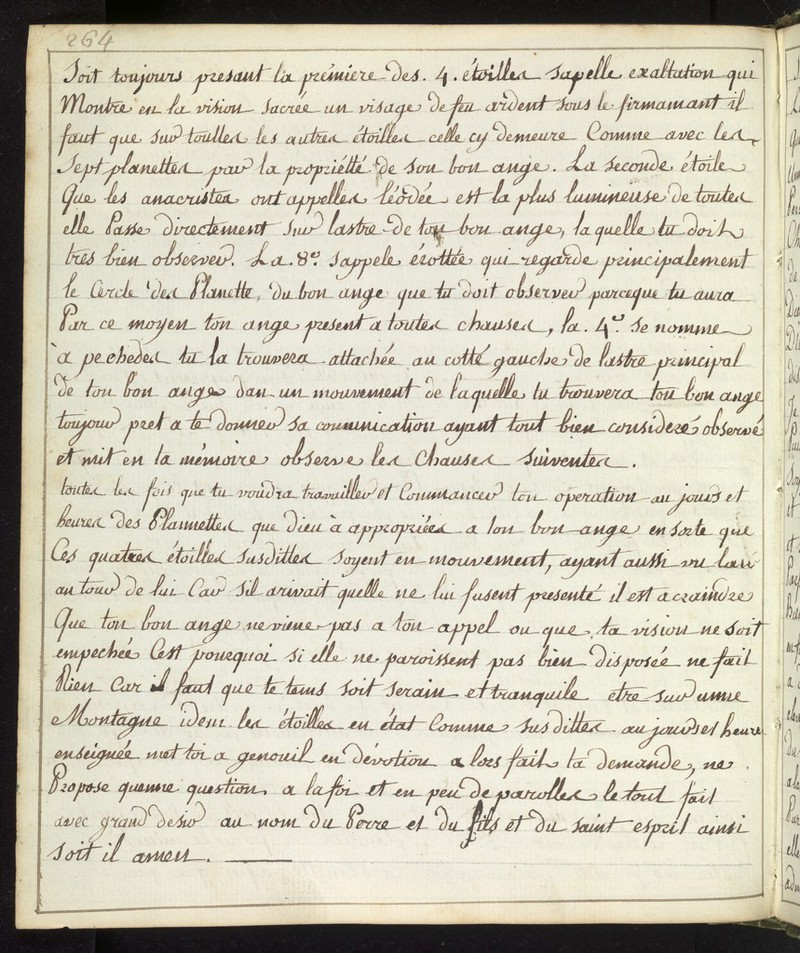 264
Soit toujours presant la première des. 4. étoilles sapelle exaltation qui
Montre en la vision sacrée un visage de feu ardent sous le firmamant il
faut que sur toutles les autres étoilles celle cy demeure Comme avec les
Sept planettes par la propriétté de son bon ange. La seconde étoile
Que les anacristes ont appelles léódée est la plus lumineuse de toutes
elle Passe directement sur lastre de ton bon ange, la quelle tu doit
tres bien observer. La. 3e. sappele érottée qui regarde principalement
le Cercle des Planette, du bon ange que tu doit observer parceque tu aura
Par ce moyen ton ange present a toutes chauses, la. 4e. se nomme
à pecheder tu la trouvera attachée au cotté gauche de lastre principal
de ton bon ange dan un mouvement de laquelle tu trouvera ton bon ange
toujour pret a te donner sa communication ayant tout bien consideré observé
et mit en ta mémoire observe les Chauses suiventes.
toutes les fois que tu voudra travailler et Commancer ton operation au jours et
heures des Plannettes que dieu à appropriées a ton bon ange en sorte que
Ces quatres étoilles susdittes soyent en mouvement, ayant aussi vu lair
au tour de lui Car sil arivait quelle ne lui fusent presenté il est a craindre
Que ton bon ange ne viene pas a ton appel ou que ta vision ne soit
empechée Cest pourquoi si elle ne paroissent pas bien disposée ne fait
Rien Car il faut que le tems soit serain et tranquile etre sur unne
Montagne idem les étoilles en état Comme susdittes au jours et heures
enseignée met toi a genouil en dévotion a lors fait ta demande, ne
Propose quenne question a la foi et en peu de parolles le tout fait
avec grand desir au nom du Perre et du fils et du saint esprit ainsi
soit il amen.